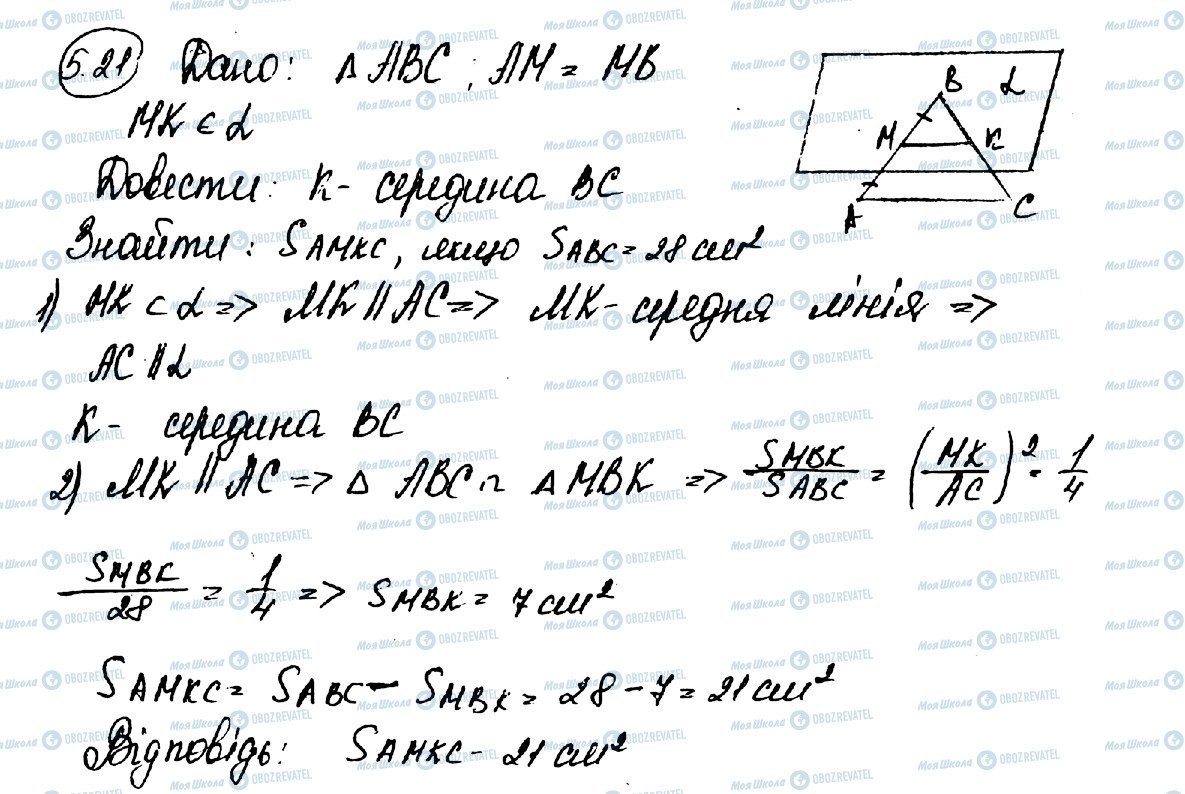 5.21 Дано: △ ABC; AM = MB
MK ⊂ α
Довести: K - середина BC
Знайти: S AMKC, якщо S ABC = 28 см²
1) MK ⊂ α => MK || AC => MK - середня лінія =>
AC || α
K - середина BC
2) MK || AC => △ ABC ~ △ MBK => S MBK / S ABC = (MK / AC)² = 1/4
S MBK / 28 = 1/4 => S MBK = 7 см²
S AMKC = S ABC - S MBK = 28 - 7 = 21 см²
Відповідь: S AMKC - 21 см²
B α
M K
A C
МояШкола OBOZREVATEL